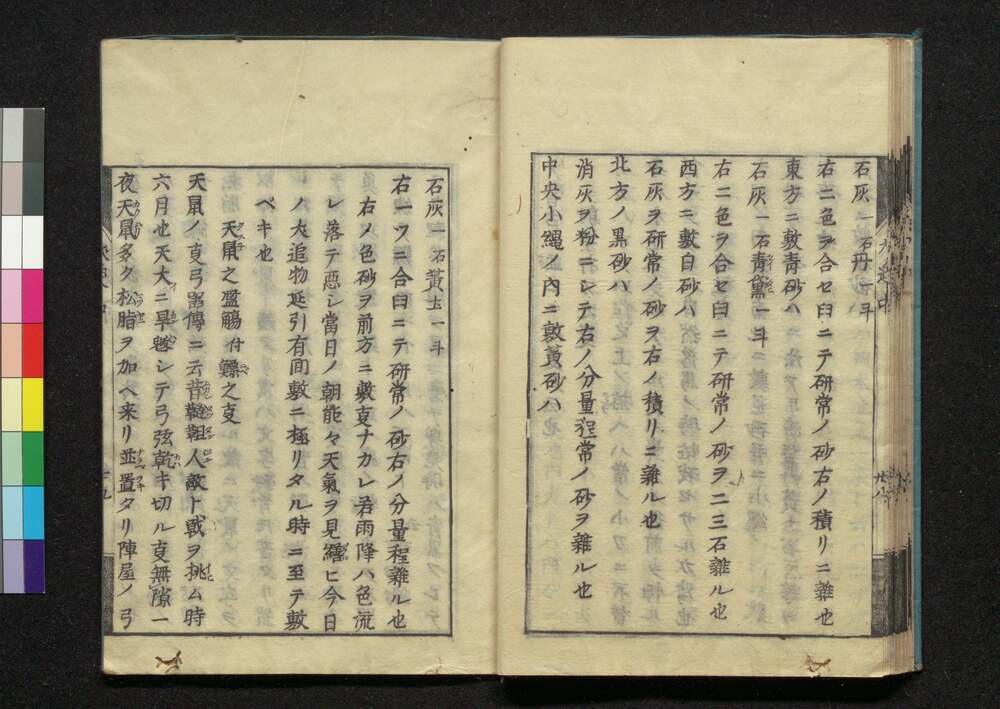 石灰一石丹一斗
右二色ヲ合セ臼ニテ研常ノ砂右ノ積リニ雜ル也
東方ニ敷青砂ハ
石灰一石青黛一斗
右二色ヲ合セ臼ニテ研常ノ砂ヲ二三石雜ル也
西方ニ敷白砂ハ
石灰ヲ研常ノ砂ヲ右ノ積リニ雜ル也
北方ノ黒砂ハ
消灰ヲ粉ニシテ右ノ分量程常ノ砂ヲ雜ル也
中央小縄ノ内ニ敷黄砂ハ
石灰一石黄土一斗
右一ツニ合臼ニテ研常ノ砂右ノ分量程雜ル也
右ノ色砂ヲ前方ニ敷叓ナカレ若雨降ハ色流
レ落テ悪シ當日ノ朝能々天氣ヲ見繕ヒ今日
ノ犬追物延引有間敷ニ極リタル時ニ至テ敷
ベキ也
天鼠之盥觴付鰾之叓
天鼠ノ叓弓畧傳ニ云昔鞨靼人敵ト戦ヲ挑ム時
六月也天大ニ旱魃シテ弓弦乾キ切ル叓無隙一
夜天鼠多ク松脂ヲ加ヘ来リ並置タリ陣屋ノ弓